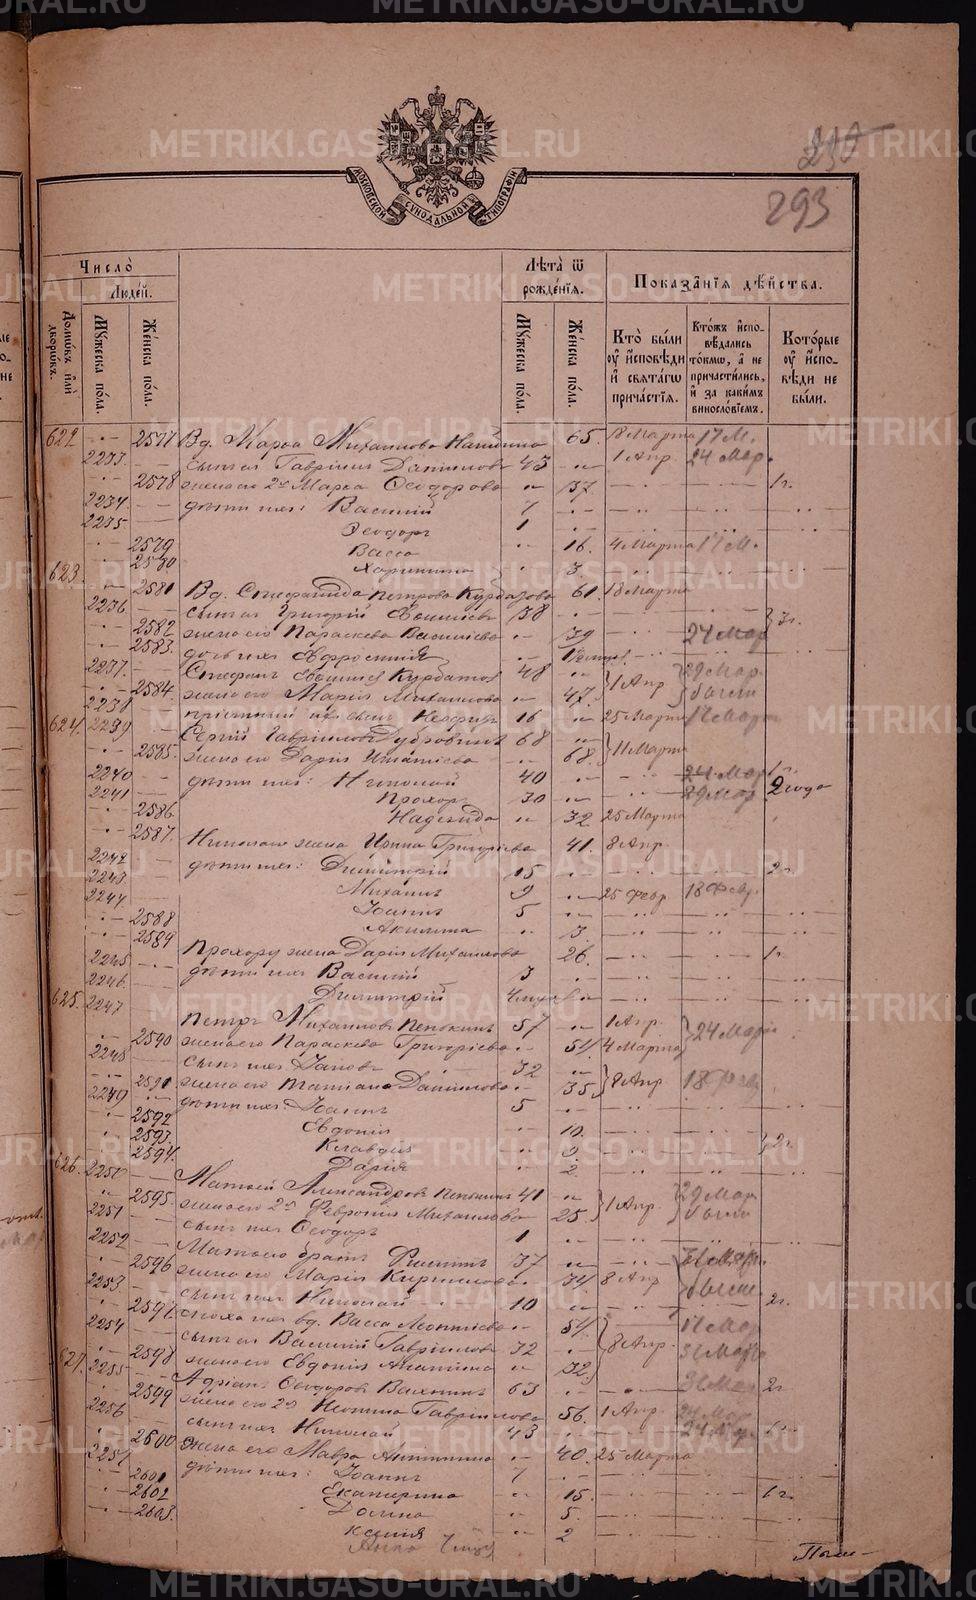 METRIKI.GASO-URAL.RU
293
МОСКОВСКОЙ СУНОДАЛЬНОЙ ТИПОГРАФІИ
Число̀
Люде́й.
Домѡ́въ и҆лѝ дворѡ́въ.
Мꙋ́жеска по́ла.
Же́нска по́ла.
Лѣ́та ѿ рожде́нїѧ.
Мꙋ́жеска по́ла.
Же́нска по́ла.
Показа̑нїѧ дѣ́йства.
Кто̀ бы́ли оу҆ и҆́сповѣди и҆ свѧта́гѡ прича́стїѧ.
Кто́жъ и҆спо-вѣ́дались то́кмѡ, а҆ не причасти́лись, и҆ за каки́мъ винослові́емъ.
Кото́рые оу҆ и҆спо-вѣди не бы́ли.
2577 Вд. Марѳа Михаилова 65. 18 Марта 17 М.
2233. сынъ ея Гавріилъ Даниловъ 43 1 Апр. 24 Мар.
2578 жена его 2я Марѳа Ѳеодорова 37. 1 г.
2234. дѣти ихъ: Василій 7
2235 Ѳеодоръ 1
2579 Васса 16. 4 Марта 17 М.
2580 Харитина 3.
623. 2581 Вд. Стефанида Петрова Курбатова 61. 18 Марта
2236 сынъ ея Григорій 38
2582 жена его Параскева 39 24 Мар 3 г.
2583. дочь ихъ Евфросинія
2237. Стефанъ Курбатовъ 48 29 Мар.
2584. жена его Марія Михаилова 47. 1 Апр
2238 пріемный ихъ сынъ 16 25 Марта 17 Марта
624. 2239 Сергій Гавріиловъ Дубровинъ 68
2585. жена его Дарія Игнатіева 68. 11 Марта
2240 дѣти ихъ: Николай 40 24 Мар
2241 Прохоръ 30 29 Мар. 2 года
2586. Надежда 32 25 Марта
2587. Николаю жена Ирина Григоріева 41. 8 Апр.
2242 дѣти ихъ: Димитрій 15 2 г.
2243 Михаилъ 9 25 Февр 18 Февр.
2244 Іоаннъ 5
2588 Акилина 3
2589 Прохору жена Дарія Михаилова 26. 1 г.
2245 дѣти ихъ Василій 3
2246. Димитрій
625. 2247 Петръ Михаиловъ Пенькинъ 57 1 Апр. 24 Мар
2590 жена его Параскева Григоріева 4 Марта
2248 сынъ ихъ Іаковъ 32
2591 жена его Татіана Данилова 35 8 Апр 18 Февр
2249 дѣти ихъ: Іоаннъ 5
2592 Евдокія 10.
2593. Клавдія 9. 2 г.
2594. Дарія 2.
626. 2250 Матѳей Александровъ Пенькинъ 41 29 Мар
2595. жена его 2я Февронія Михаилова 25. 1 Апр.
2251 сынъ ихъ Ѳеодоръ 1
2252 Матѳею братъ Филиппъ 37 31 Мар
2596 жена его Марія Кириллова 34. 8 Апр
2253 сынъ ихъ Николай 10 2 г.
2597. сноха ихъ вд. Васса Леонтіева 54 17 Мар
2254 сынъ ея Василій Гавріиловъ 32 8 Апр. 31 Мар
2598 жена его Евдокія 32
627. 2255 Адріанъ Ѳеодоровъ 63 31 Мар 2 г
2599 жена его 2я Гавріилова 56. 1 Апр. 24 Мар
2256 сынъ ихъ Николай 43 24 Мар 1 г.
2600 жена его Мавра 40. 25 Марта
2257 дѣти ихъ: Іоаннъ 7
2601 Екатерина 15. 1 г.
2602 Домна 5.
2603. Ксенія 2